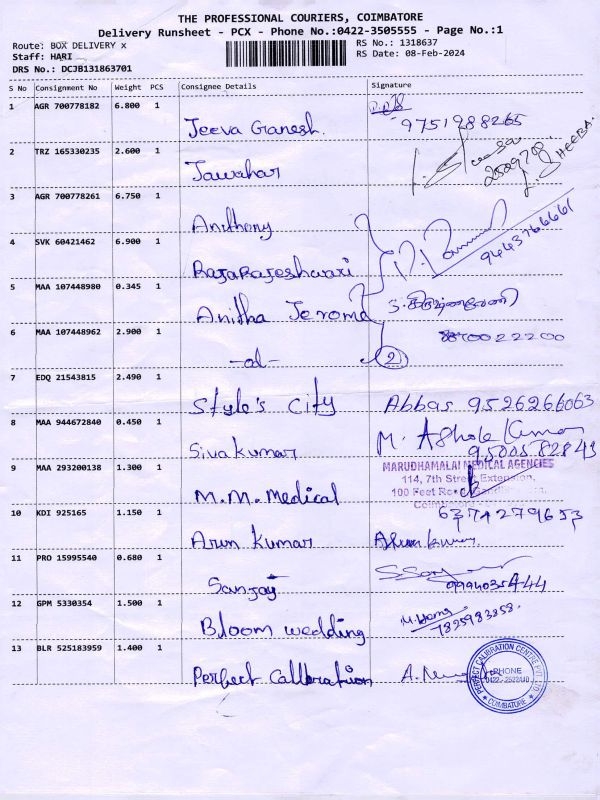 THE PROFESSIONAL COURIERS, COIMBATORE
Delivery Runsheet - PCX - Phone No.:0422-3505555 - Page No.:1
Route: BOX DELIVERY x
Staff: HARI
DRS No.: DCJB131863701
RS No.: 1318637
RS Date: 08-Feb-2024
S No Consignment No Weight PCS Consignee Details Signature
1 AGR 700778182 6.800 1
Jeeva Ganesh. 9751988265
2 TRZ 165330235 2.600 1
Jawahar
SHEEBA.
3 AGR 700778261 6.750 1
Anithony
9443766661
4 SVK 60421462 6.900 1
RajaRajeshwari
5 MAA 107448980 0.345 1
Anitha Jerome
6 MAA 107448962 2.900 1
-do- 2
7 EDQ 21543815 2.490 1
Style's City Abbas 9526266063
8 MAA 944672840 0.450 1
Sivakumar M. Ashok Kumar
9500582843
9 MAA 293200138 1.300 1
M.M. Medical
MARUDHAMALAI MEDICAL AGENCIES
114, 7th Street Extension,
100 Feet Road,
10 KDI 925165 1.150 1
6374279653
Arun Kumar Arun kumar
11 PRO 15995540 0.680 1
Sanjay
12 GPM 5330354 1.500 1
Bloom wedding
7825983858.
13 BLR 525183959 1.400 1
Perfect Callbration
PERFECT CALIBRATION CENTRE PVT LTD
PHONE
COIMBATORE